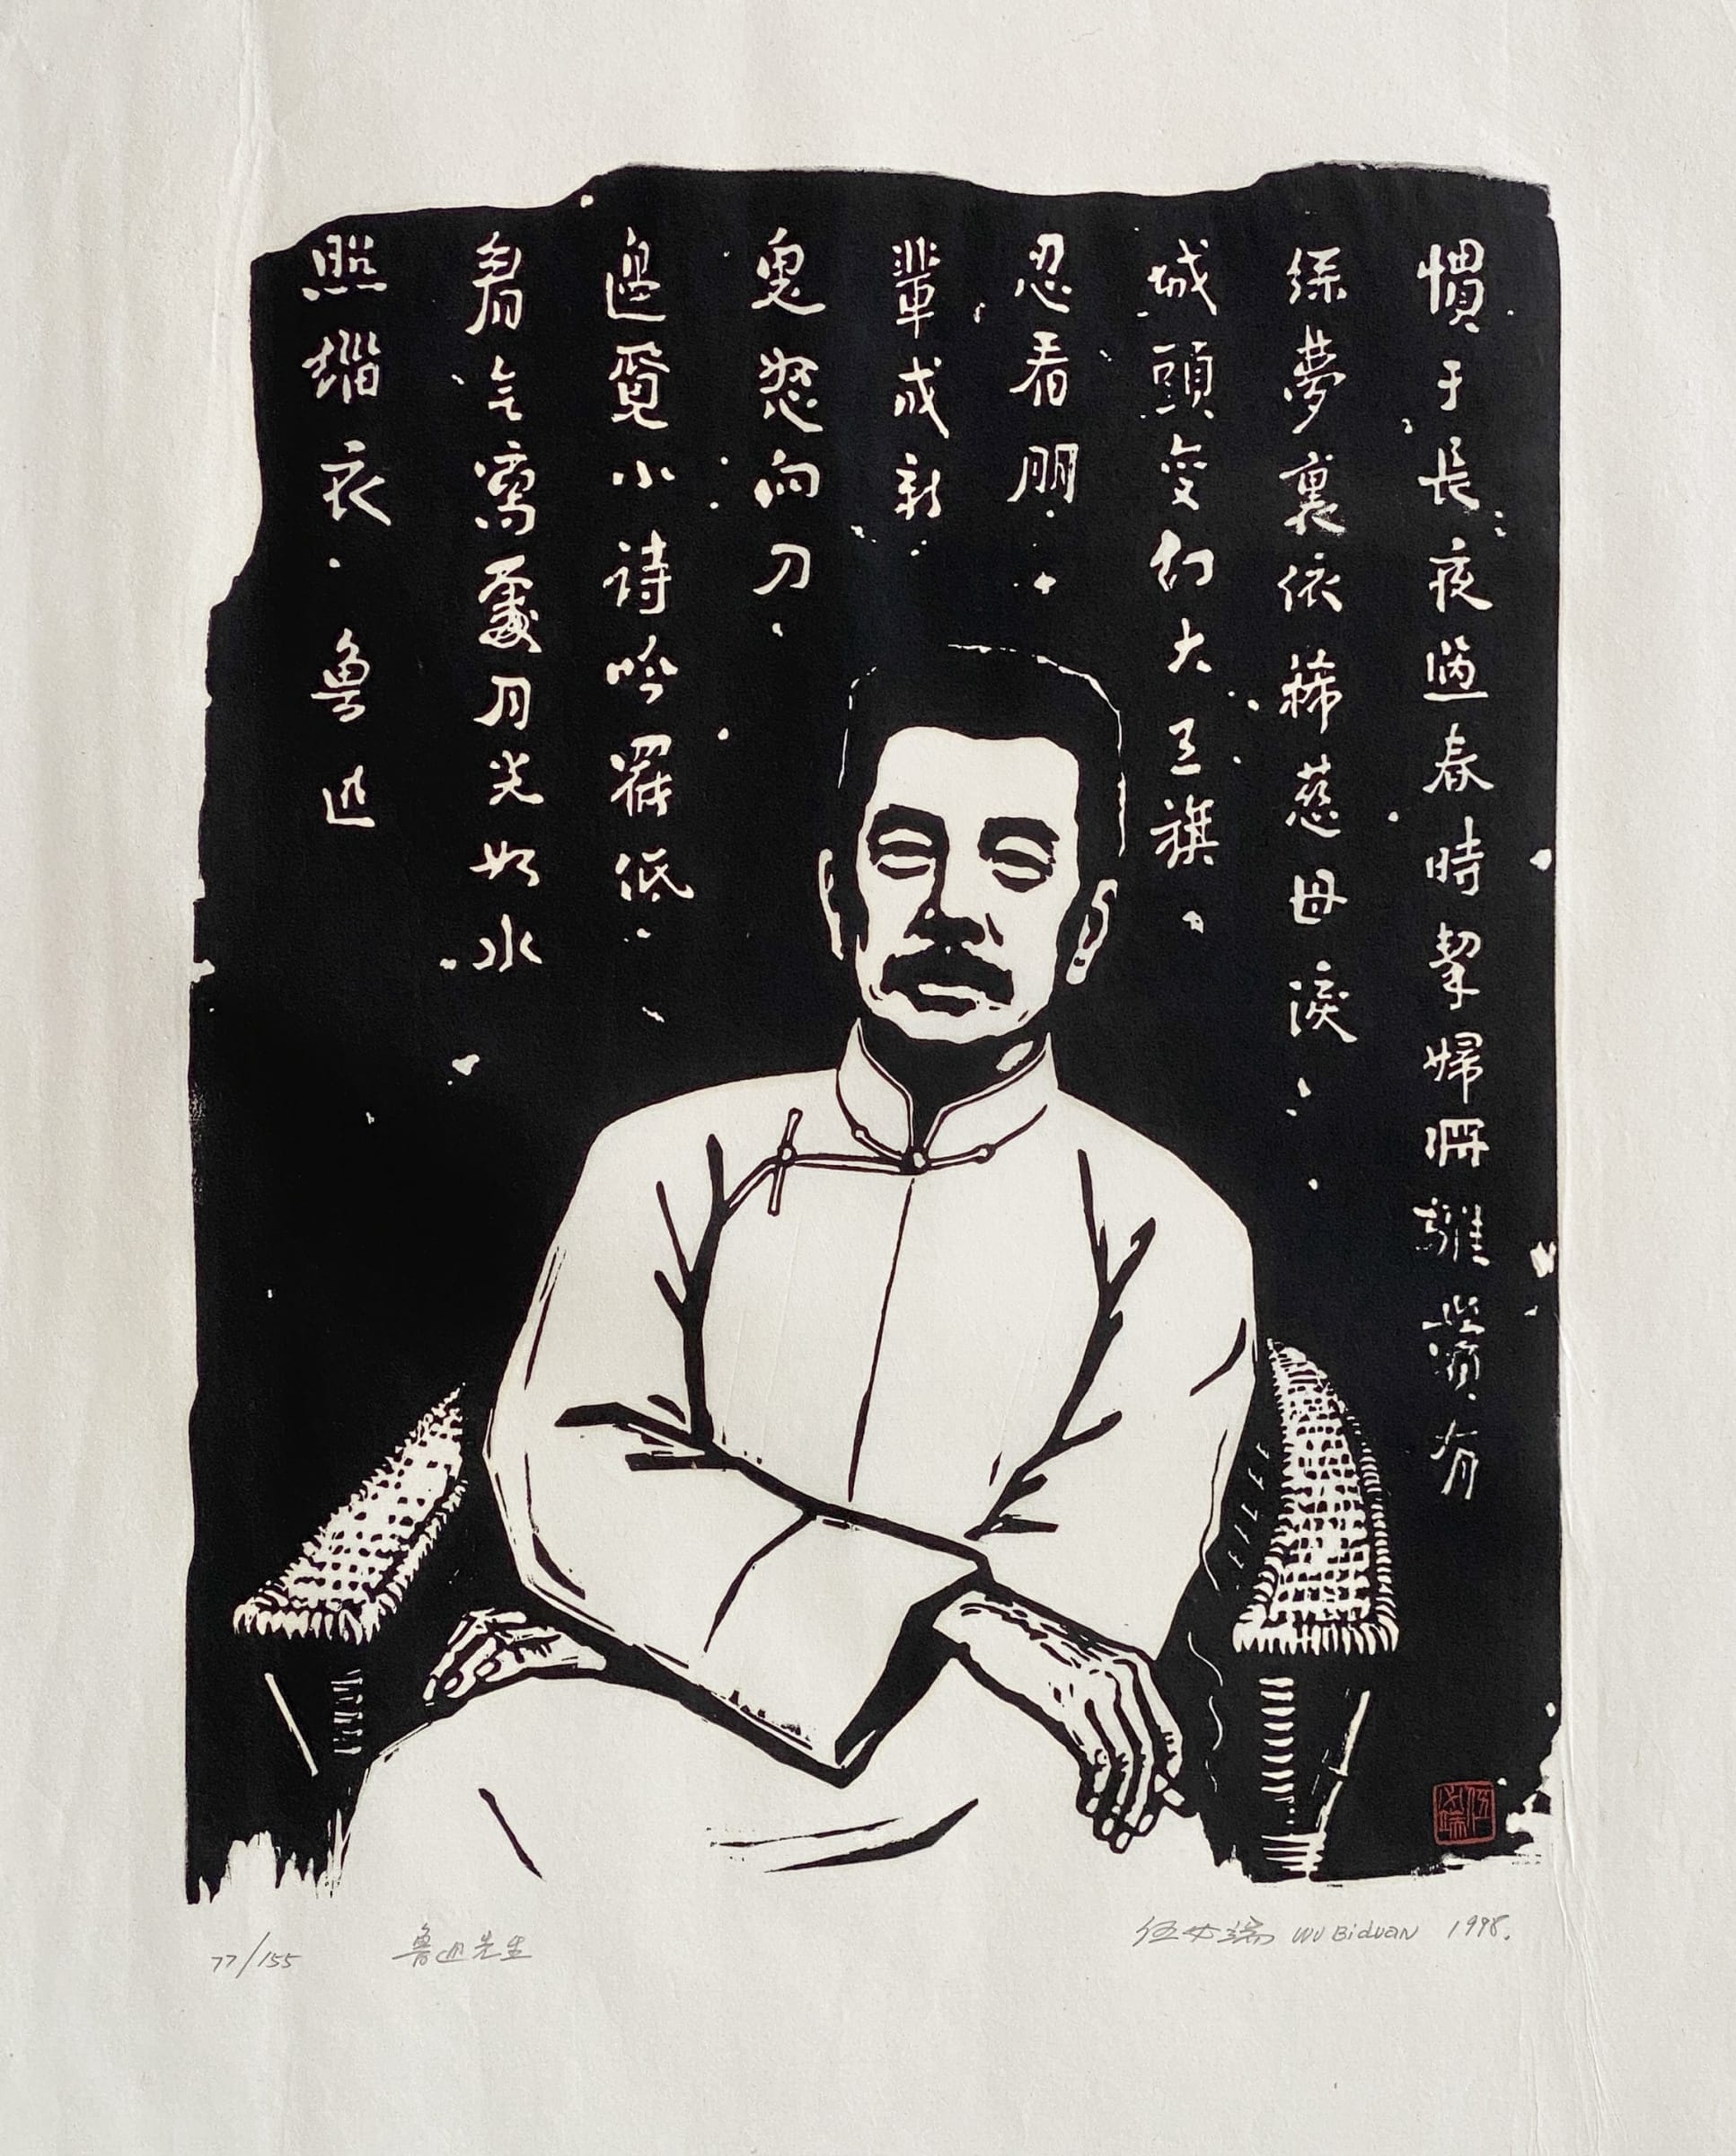 慣于長夜過春時挈婦將雛鬢有
絲夢裏依稀慈母淚
城頭变幻大王旗。
忍看朋
輩成新
鬼怒向刀
邊覓小詩吟罷低
眉无寫處月光如水
照緇衣 魯迅
伍必端
77/155 魯迅先生 伍必端 WU BIDUAN 1998.